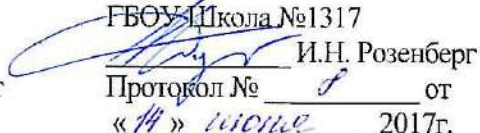 ГБОУ Школа №1317
И.Н. Розенберг
Протокол № 8 от
« 14 » июня 2017г.